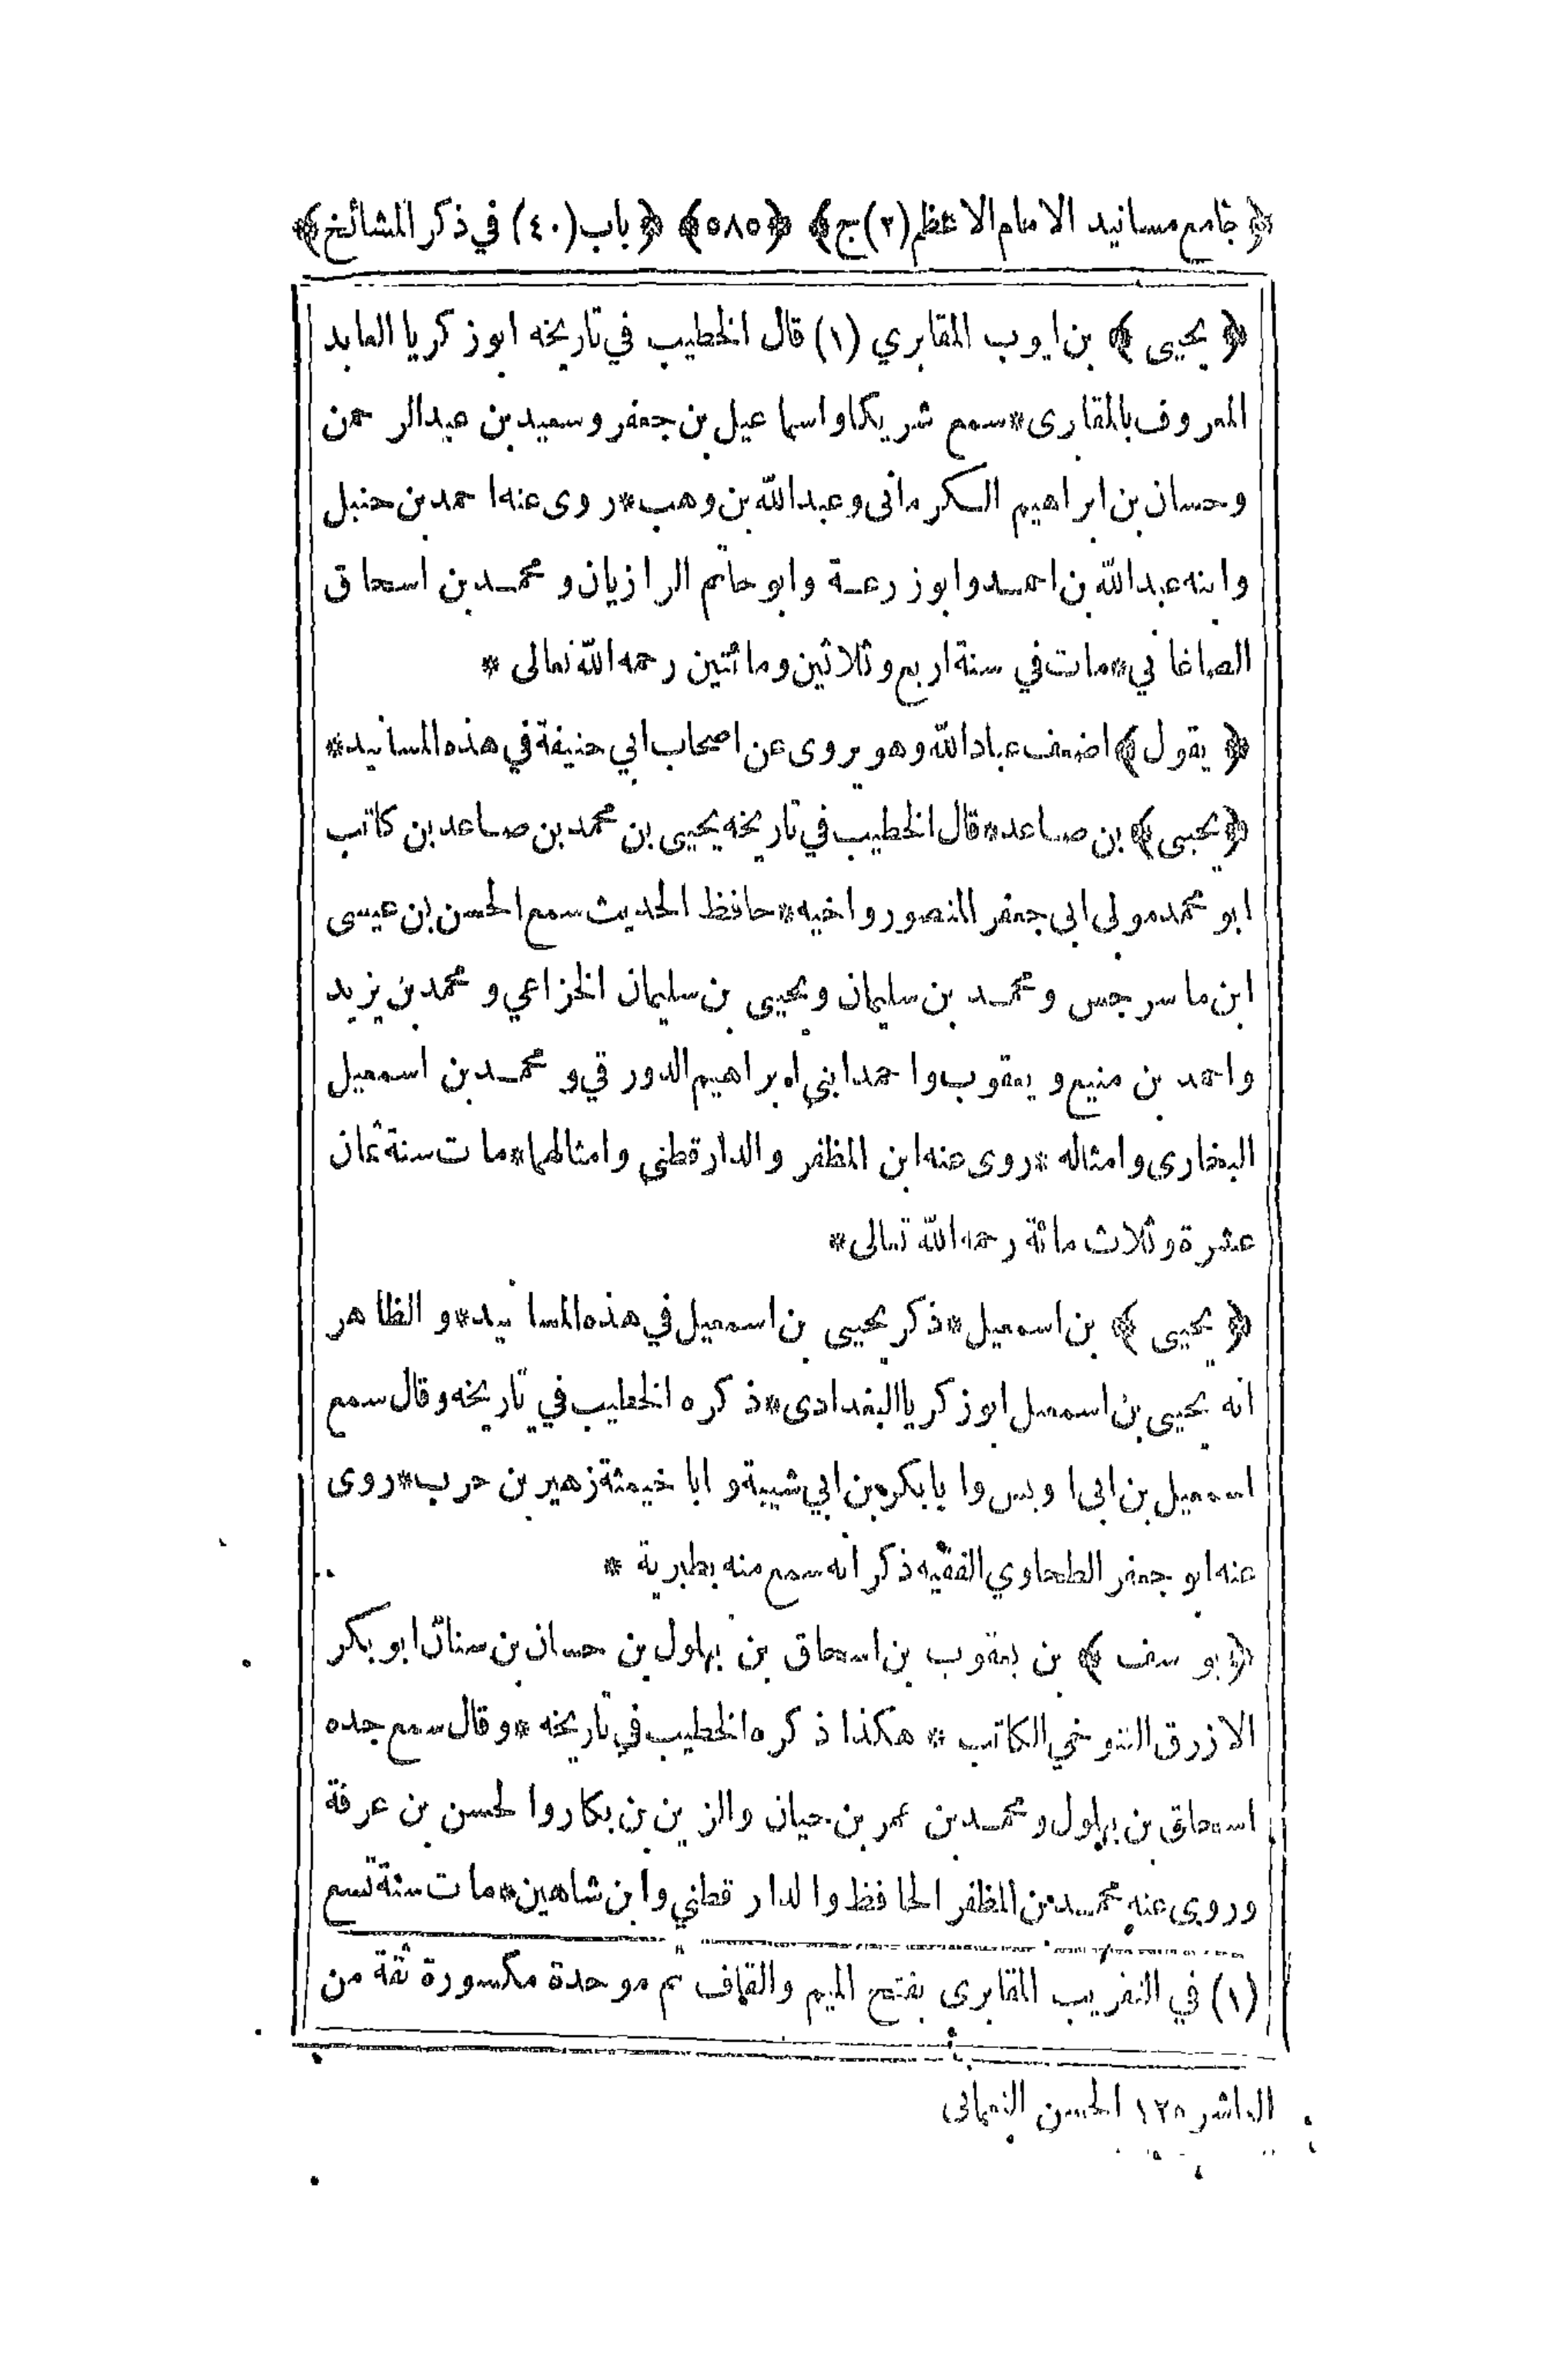 ﴿جامع مسانيد الامام الاعظم (٢) ج﴾ ﴿٥٨٥﴾ ﴿باب (٤٠) في ذكر المشائخ﴾
﴿ يحيى ﴾ بن ايوب المقابري (١) قال الخطيب في تاريخه ابو زكريا العابد
المعروف بالمقارى*سمع شريكا واسماعيل بن جعفر وسعيد بن عبد الرحمن
وحسان بن ابراهيم الكرمانى وعبد الله بن وهب*روى عنه احمد بن حنبل
وابنه عبد الله بن احمد وابو زرعة وابو حاتم الرازيان ومحمد بن اسحاق
الصاغاني*مات في سنة اربع وثلاثين ومائتين رحمه الله تعالى *
﴿ يقول ﴾ اضعف عباد الله وهو يروى عن اصحاب ابي حنيفة في هذه المسانيد*
﴿ يحيى ﴾ بن صاعد*قال الخطيب في تاريخه يحيى بن محمد بن صاعد بن كاتب
ابو محمد مولى ابى جعفر المنصور واخيه*حافظ الحديث سمع الحسن بن عيسى
ابن ماسرجس ومحمد بن سليمان ويحيى بن سليمان الخزاعي ومحمد بن يزيد
واحمد بن منيع ويعقوب واحمد ابني ابراهيم الدورقي ومحمد بن اسمعيل
البخارى وامثاله *روى عنه ابن المظفر والدارقطني وامثالهما*مات سنة ثمان
عشرة وثلاث مائة رحمه الله تعالى*
﴿ يحيى ﴾ بن اسمعيل*ذكر يحيى بن اسمعيل في هذه المسانيد*والظاهر
انه يحيى بن اسمعيل ابو زكريا البغدادى*ذكره الخطيب في تاريخه وقال سمع
اسمعيل بن ابى اويس وا بابكر بن ابي شيبة وابا خيثمة زهير بن حرب*روى
عنه ابو جعفر الطحاوي الفقيه ذكر انه سمع منه بطبرية *
﴿ يوسف ﴾ بن يعقوب بن اسحاق بن بهلول بن حسان بن سنان ابو بكر
الازرق التنوخي الكاتب * هكذا ذكره الخطيب في تاريخه *وقال سمع جده
اسحاق بن بهلول ومحمد بن عمر بن حيان والزبين بن بكار والحسن بن عرفة
وروى عنه محمد بن المظفر الحافظ والدارقطني وابن شاهين*مات سنة تسع
(١) في التقريب المقابرى بفتح الميم والقاف ثم موحدة مكسورة ثقة من
العاشر ١٢ الحسن النعمانى